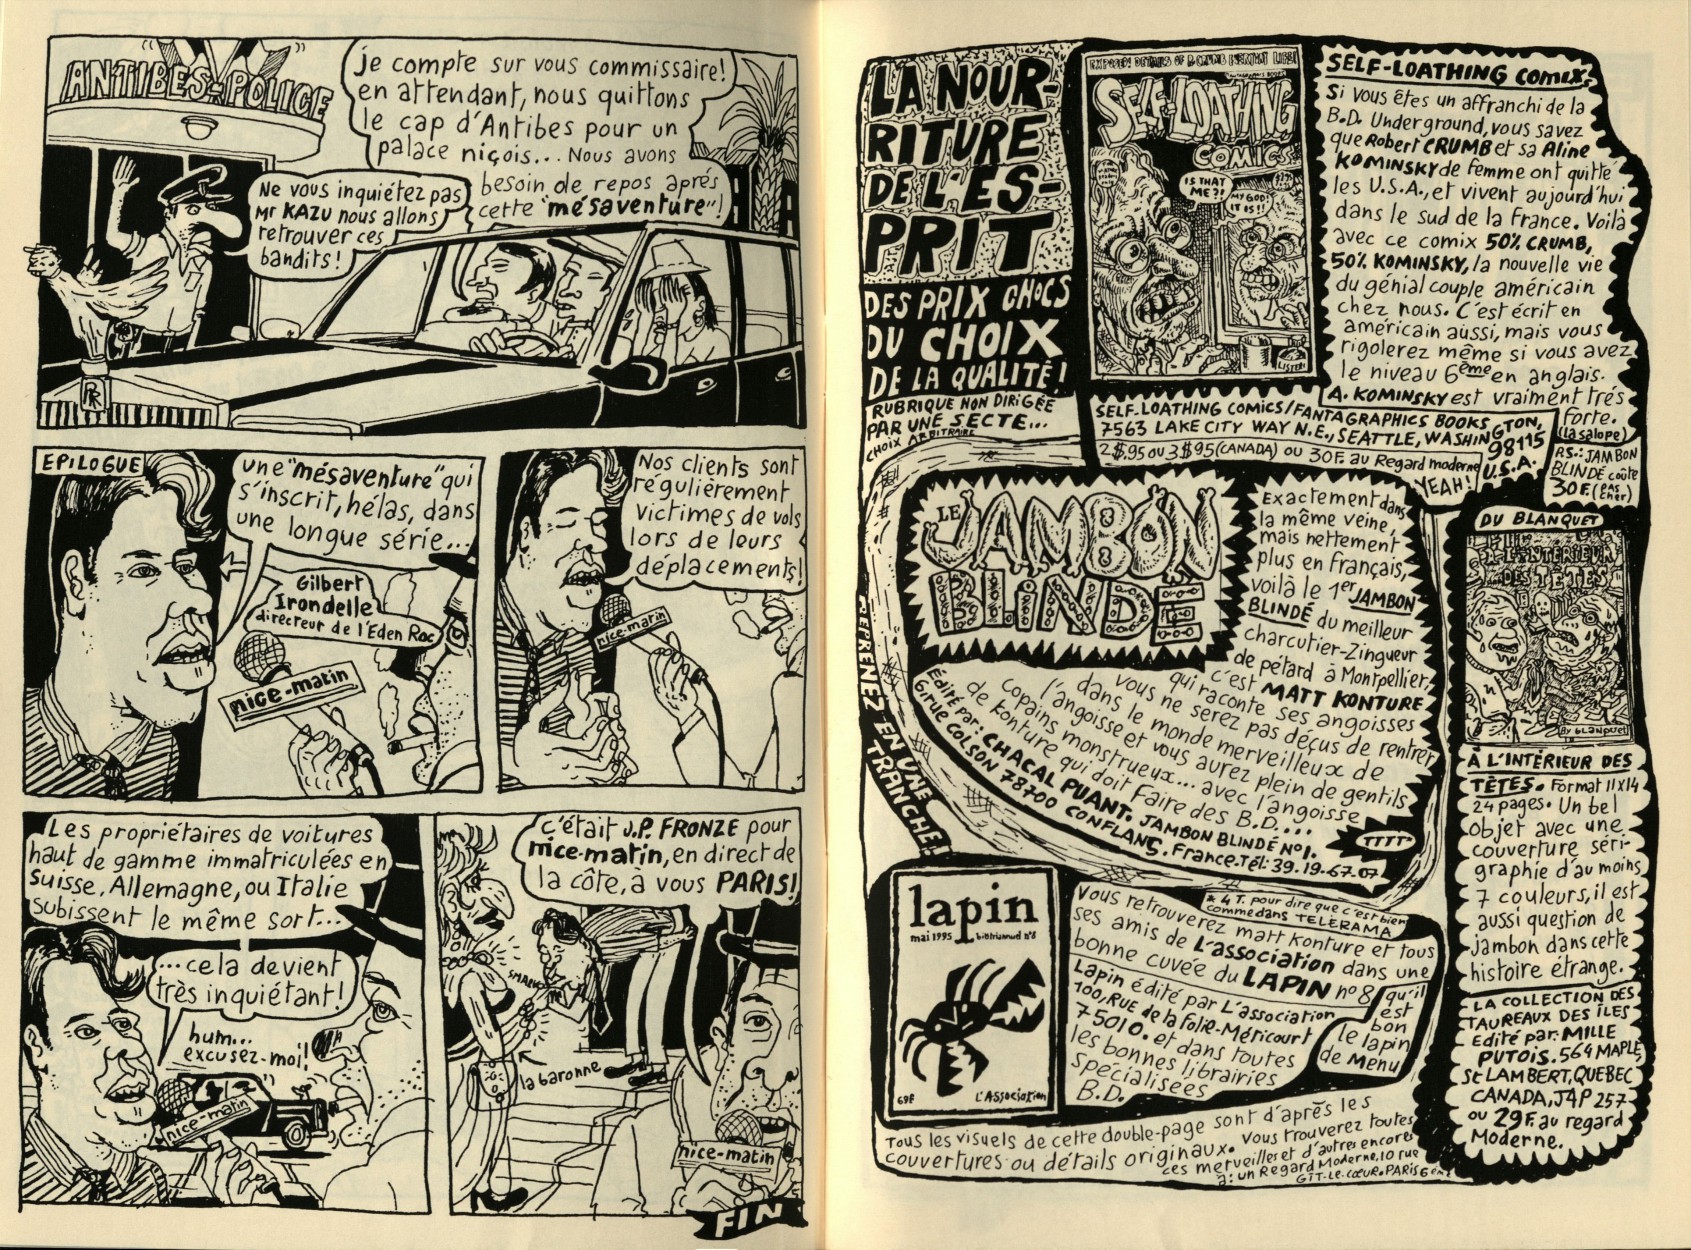 ANTIBES-POLICE
je compte sur vous commissaire!
en attendant, nous quittons
le cap d'Antibes pour un
palace niçois... Nous avons
besoin de repos après
cette "mésaventure"!
Ne vous inquiétez pas
Mr KAZU nous allons
retrouver ces
bandits!
RR
EPILOGUE
une "mésaventure" qui
s'inscrit, hélas, dans
une longue série...
Gilbert
Irondelle
directeur de l'Eden Roc
nice-matin
Nos clients sont
régulièrement
victimes de vols
lors de leurs
déplacements!
nice-matin
Les propriétaires de voitures
haut de gamme immatriculées en
Suisse, Allemagne, ou Italie
subissent le même sort...
...cela devient
très inquiétant!
hum...
excusez-moi!
nice-matin
c'était J.P. FRONZE pour
nice-matin, en direct de
la côte, à vous PARIS!
SMACK
la baronne
nice-matin
FIN
LA NOUR-
RITURE
DE L'ES-
PRIT
DES PRIX CHOCS
DU CHOIX
DE LA QUALITÉ!
RUBRIQUE NON DIRIGÉE
PAR UNE SECTE...
CHOIX ARBITRAIRE
SELF-LOATHING
COMICS
IS THAT
ME?!
MY GOD!
IT IS!!
LISTEN!
SELF-LOATHING comix.
Si vous êtes un affranchi de la
B.D. Underground, vous savez
que Robert CRUMB et sa Aline
KOMINSKY de femme ont quitté
les U.S.A., et vivent aujourd'hui
dans le sud de la France. Voilà
avec ce comix 50% CRUMB,
50% KOMINSKY, la nouvelle vie
du génial couple américain
chez nous. C'est écrit en
américain aussi, mais vous
rigolerez même si vous avez
le niveau 6ème en anglais.
A. KOMINSKY est vraiment très
forte.
(la salope)
SELF-LOATHING COMICS/FANTAGRAPHICS BOOKS
7563 LAKE CITY WAY N.E., SEATTLE, WASHINGTON,
98115
U.S.A.
2$,95 ou 3$95 (CANADA) ou 30F. au Regard moderne
YEAH!
P.S.: JAMBON
BLINDÉ coûte
30F. (pas cher)
LE JAMBON
BLINDÉ
Exactement dans
la même veine,
mais nettement
plus en français,
voilà le 1er JAMBON
BLINDÉ du meilleur
charcutier-Zingueur
de pétard à Montpellier,
c'est MATT KONTURE
qui raconte ses angoisses
vous ne serez pas déçus de rentrer
dans le monde merveilleux de
l'angoisse et vous aurez plein de gentils
copains monstrueux... avec l'angoisse
de Konture qui doit faire des B.D....
Édité par: CHACAL PUANT. JAMBON BLINDÉ N°1.
6, rue COLSON 78700 CONFLANS. France. Tél: 39.19.67.07
TTTT*
REPRENEZ EN UNE
TRANCHE!
* 4 T. pour dire que c'est bien
comme dans TELERAMA
DU BLANQUET
À L'INTÉRIEUR
DES TÊTES
By BLANQUET
À L'INTÉRIEUR DES
TÊTES. Format 11x14
24 pages. Un bel
objet avec une
couverture séri-
graphie d'au moins
7 couleurs, il est
aussi question de
jambon dans cette
histoire étrange.
LA COLLECTION DES
TAUREAUX DES ÎLES
Edité par: MILLE
PUTOIS. 564 MAPLE,
St LAMBERT, QUEBEC
CANADA, J4P 2S7
ou 29F. au regard
Moderne.
lapin
mai 1995 bimestriel n°8
69F L'Association
Vous retrouverez Matt Konture et tous
ses amis de L'association dans une
bonne cuvée du LAPIN n°8
Lapin édité par L'association
100, RUE de la Folie-Méricourt
75010. et dans toutes
les bonnes librairies
spécialisées
B.D.
qu'il
est
bon
le lapin
de Menu
Tous les visuels de cette double-page sont d'après les
couvertures ou détails originaux. Vous trouverez toutes
ces merveilles et d'autres encores
à: un Regard Moderne, 10 rue
GÎT-LE-CŒUR. PARIS 6ème